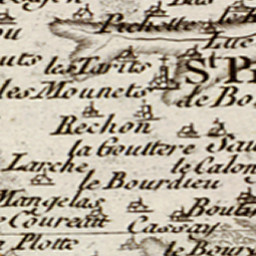 Pichette
les Tarits
St P
les Mounets
de Bo
Rechon
la Gouttere
Sau
Larche
le Calon
le Bourdieu
Mangelas
Coureau
Cassay
Plotte
le Bour